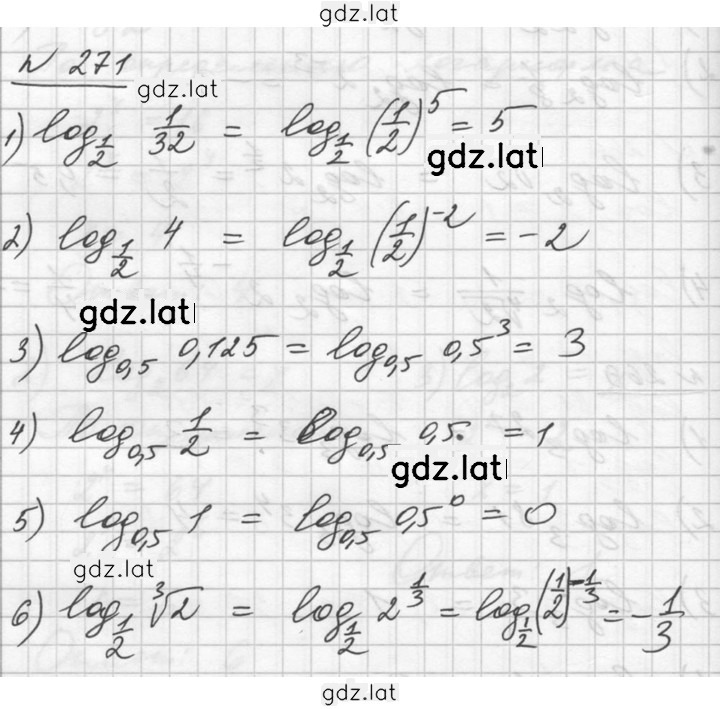 gdz.lat
N 271
gdz.lat
1) log_{1/2} 1/32 = log_{1/2} (1/2)^5 = 5
gdz.lat
2) log_{1/2} 4 = log_{1/2} (1/2)^{-2} = -2
gdz.lat
3) log_{0,5} 0,125 = log_{0,5} 0,5^3 = 3
4) log_{0,5} 1/2 = log_{0,5} 0,5 = 1
gdz.lat
5) log_{0,5} 1 = log_{0,5} 0,5^0 = 0
gdz.lat
6) log_{1/2} ∛2 = log_{1/2} 2^{1/3} = log_{1/2} (1/2)^{-1/3} = -1/3
gdz.lat